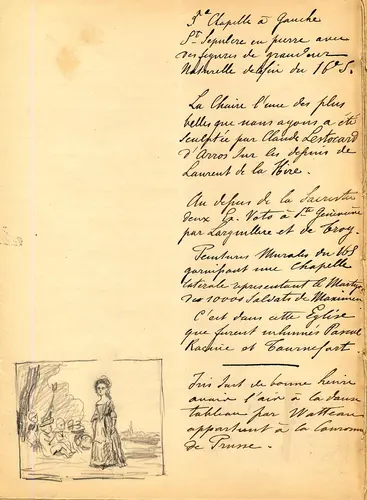 3e Chapelle à Gauche
St Sepulcre en pierre avec
des figures de grandeur
Naturelle de la fin du 16e S.
La Chaire l'une des plus
belles que nous ayons a été
sculptée par Claude Lestocard
d'Arras sur les dessins de
Laurent de la Hire.
Au dessus de la Sacristie
deux Ex. Voto à Ste Geneviève
par Largillere et de Troy.
Peintures Murales du 16S
garnissant une Chapelle
latérale représentant le Martyre
des 10000 Soldats de Maximien
C'est dans cette Eglise
que furent inhumés Pascal
Racine et Tournefort
de bonne heure
avoir l'air à la danse
tableau par Watteau
appartient à la Couronne
de Prusse.